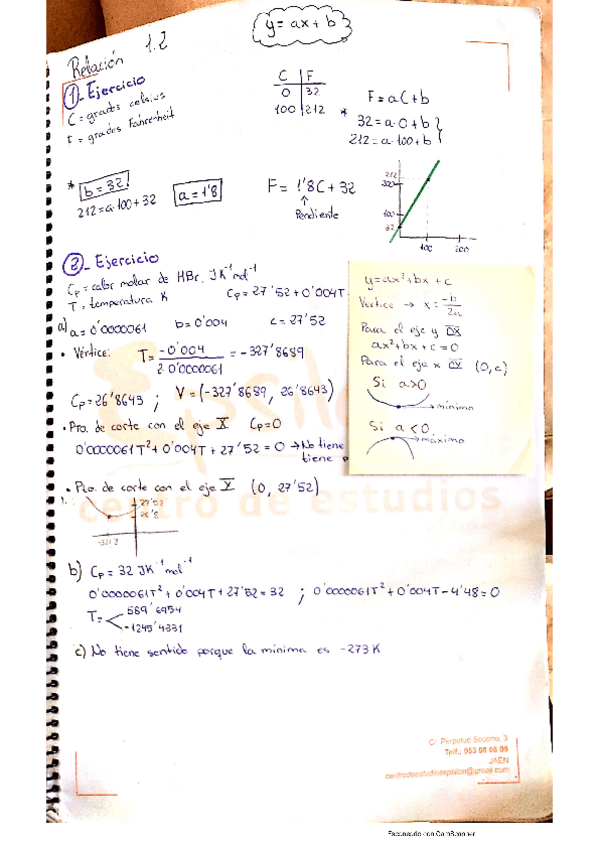 y = ax + b
Relación 1.2
1_ Ejercicio
C = grados celsius
F = grados Fahrenheit
C F
0 32
100 212
F = aC + b
* 32 = a·0 + b
212 = a·100 + b
* b = 32
212 = a·100 + 32
a = 1'8
F = 1'8C + 32
↑
Pendiente
212
200
100
32
100 200
2_ Ejercicio
Cp = calor molar de HBr. JK⁻¹mol⁻¹
T = temperatura K
Cp = 27'52 + 0'004T
a) a = 0'0000061 b = 0'004 c = 27'52
• Vértice: T = -0'004 / 2·0'0000061 = -327'8689
Cp = 26'8643 ; V = (-327'8689, 26'8643)
• Pto. de corte con el eje X Cp = 0
0'0000061T² + 0'004T + 27'52 = 0 → No tiene
tiene
• Pto. de corte con el eje Y (0, 27'52)
27'52
26'8
-327'8
y = ax² + bx + c
Vertice → x = -b / 2a
Para el eje y OX
ax² + bx + c = 0
Para el eje x OY (0, c)
Si a>0
→ mínimo
Si a<0
→ máximo
b) Cp = 32 JK⁻¹mol⁻¹
0'0000061T² + 0'004T + 27'52 = 32 ; 0'0000061T² + 0'004T - 4'48 = 0
T = 589'6954
-1245'4331
c) No tiene sentido porque la mínima es -273 K
Epsilon
centro de estudios
C/ Perpetuo Socorro, 3
Telf.: 953 08 08 09
JAÉN
centrodeestudiosepsilon@gmail.com
Escaneado con CamScanner